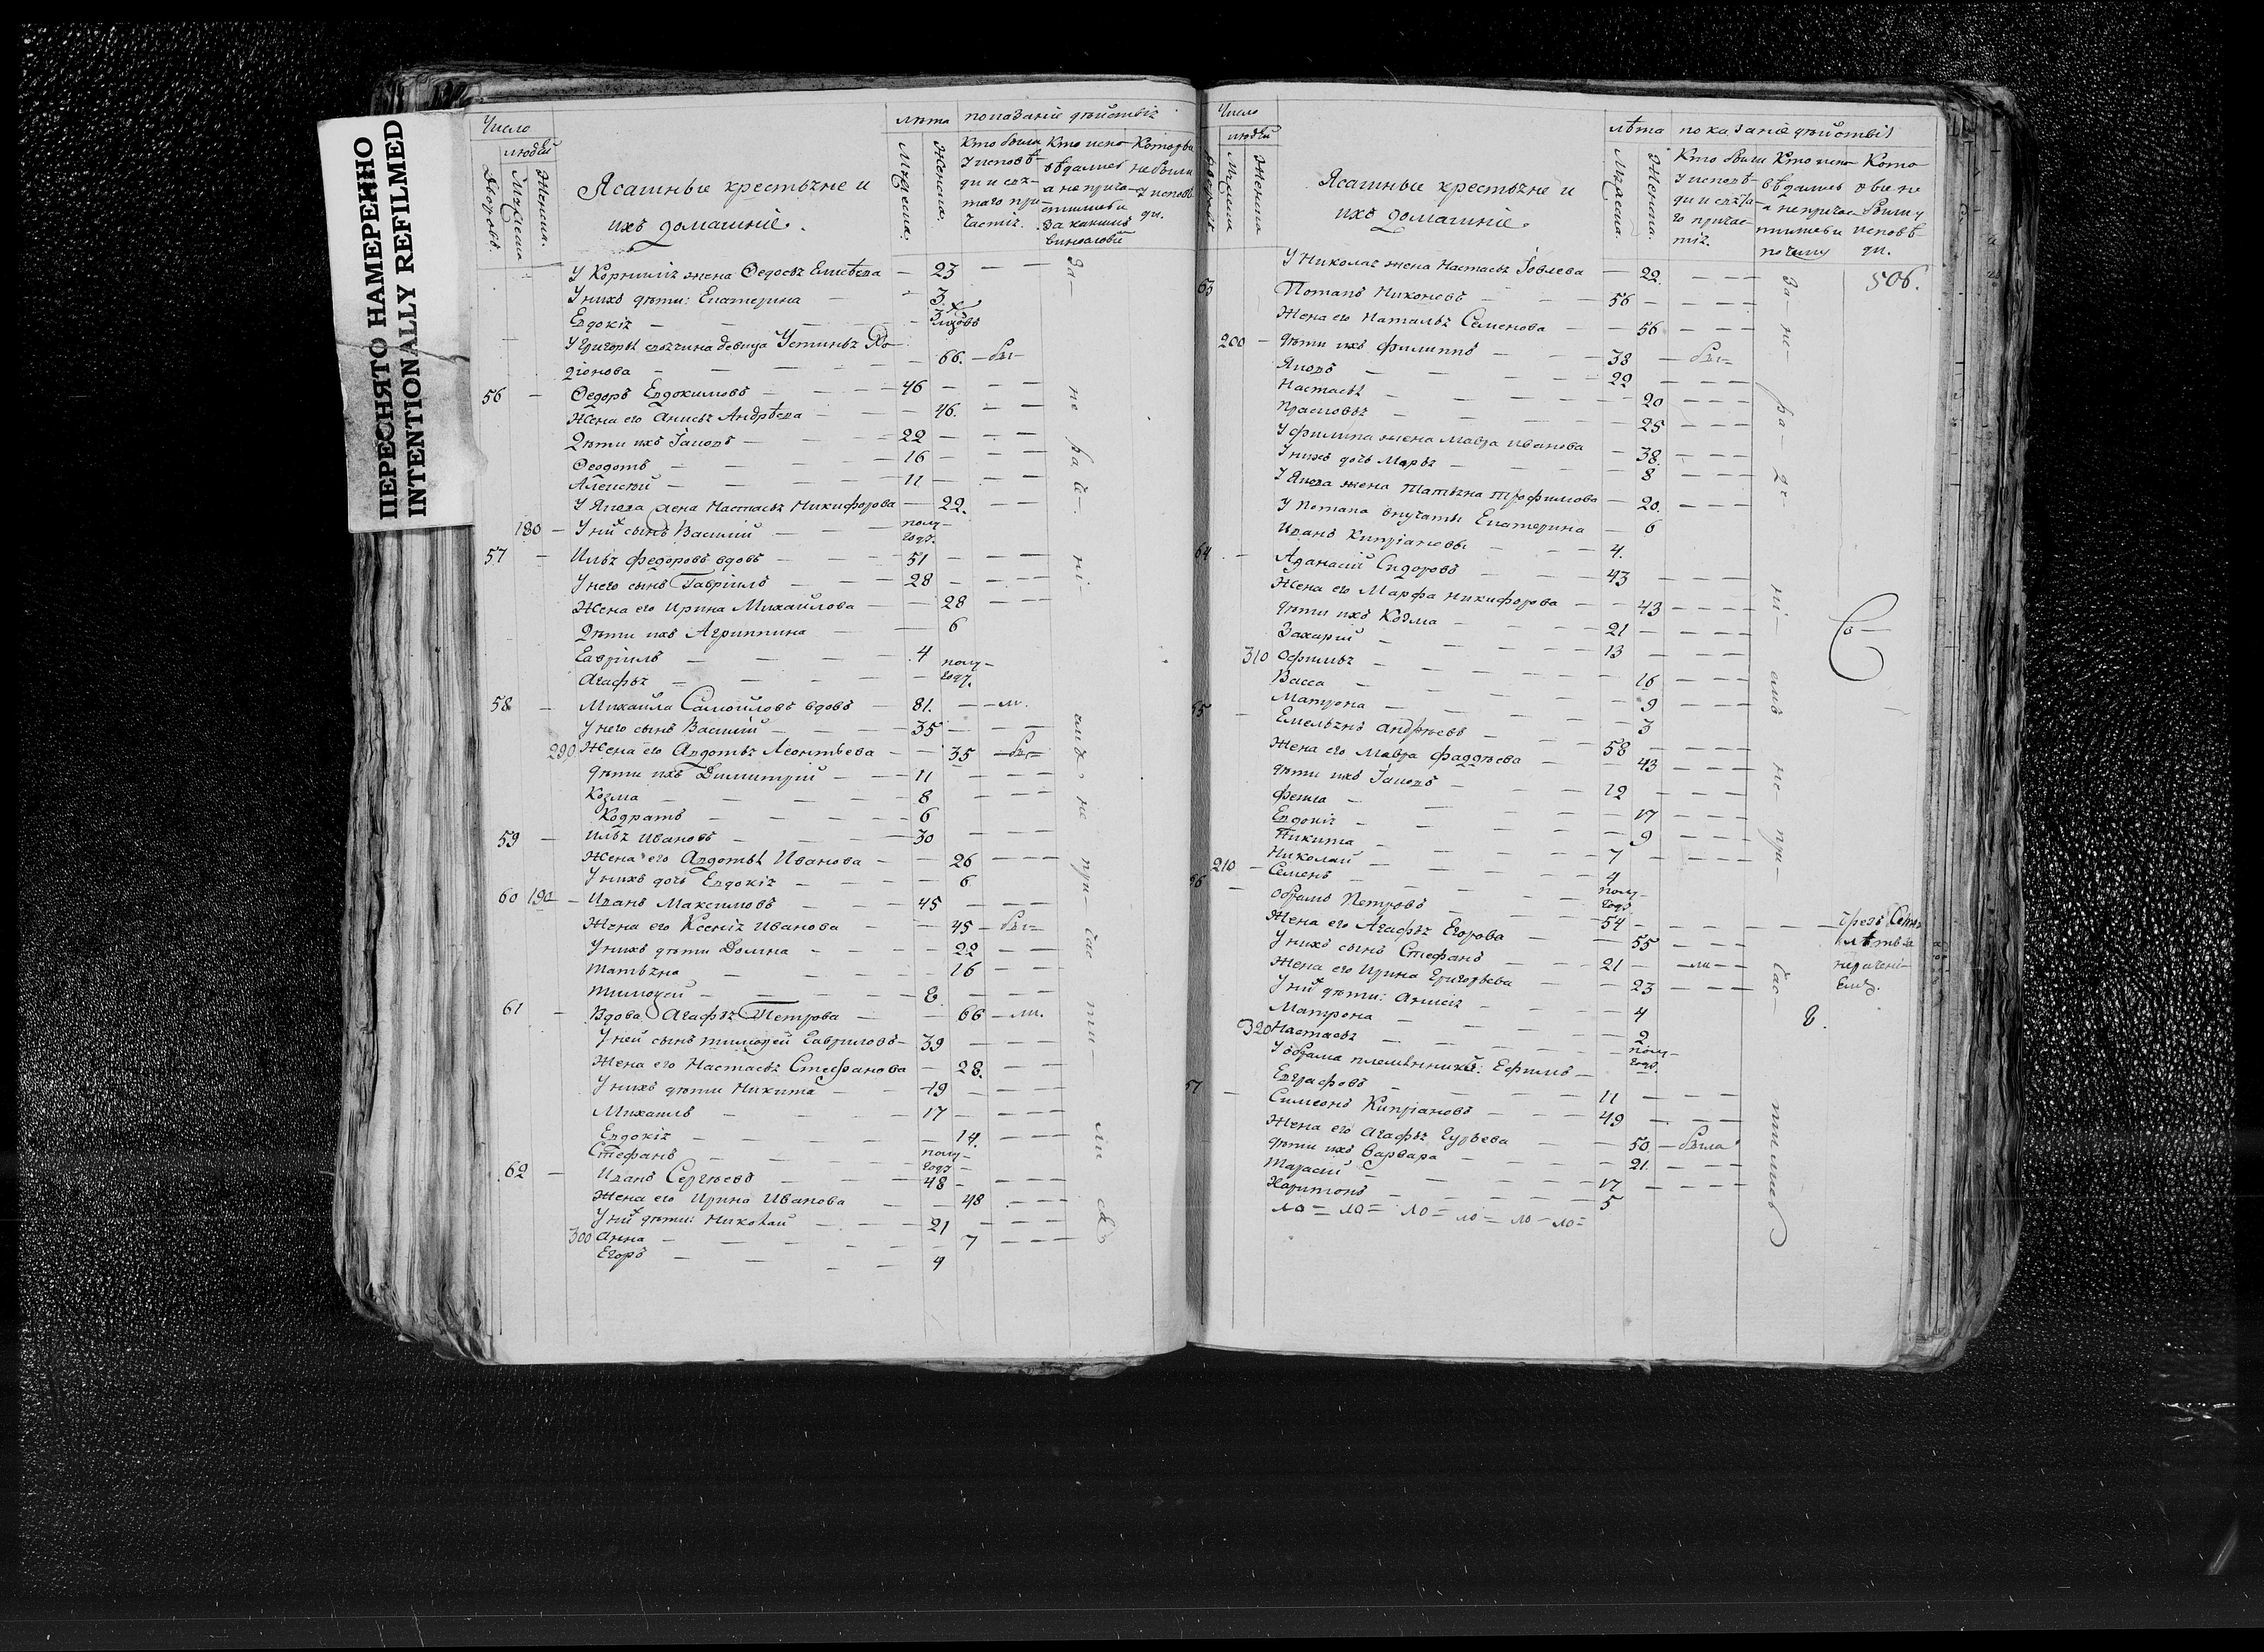 ПЕРЕСНЯТО НАМЕРЕННО
INTENTIONALLY REFILMED
Число
людей
Дворовъ.
Мужеска
Женска.
Ясашные крестьяне и
ихъ домашніе.
лѣта
Мужеска.
Женска.
показаніе дѣйствія
Кто были
у исповѣ-
ди и свя-
таго при-
частія.
Кто испо-
вѣдались
а не прича-
стились
за какимъ
винословіем
Которые
не были
у исповѣ
ди.
У Корнилія жена Федосья Елисѣева — 23 — —
У нихъ дѣти: Екатерина — 3.
Евдокія — — — —
У Григорья своячина девица Устинья Ро-
дионова — — — 66. — бы —
56 — Федоръ Евдокимовъ — — — 46 — — —
Жена его Анисья Андрѣева — — 46. — —
Дѣти ихъ Іаковъ — — — 22 — — —
Феодотъ — — — — 16 — — —
Алексѣй — — — — 11 — — —
У Якова жена Настасья Никифорова — 22. — —
180 — У них сынъ Василий — — полу-
году.
57 — Илья Федоровъ вдовъ — — 51 — — —
У него сынъ Гавріилъ — — — 28 — — —
Жена его Ирина Михайлова — — 28 — —
Дѣти ихъ Агриппина — — 6
Гавріилъ — — — — 4
Агафья — — — — полу-
году.
58 — Михаила Самойловъ вдовъ — 81. — — ли.
У него сынъ Василий — — — 35 — — —
290 Жена его Авдотья Леонтьева — — 35 — бы —
дѣти ихъ Димитрий — — — 11 — — —
Козма — — — — 8 — — —
Кодратъ — — — — 6
59 — Илья Ивановъ — — — — 30 — — —
Жена его Авдотья Иванова — — 26 — — —
У нихъ дочь Евдокія — — — 6
60 190 — Иванъ Максимовъ — — — 45 — — —
Жена его Ксенія Иванова — — 45 — бы —
У нихъ дѣти Домна — — — 22 — —
Татьяна — — — — 16 — —
Тимофей — — — — 8. — — —
61 — Вдова Агафья Петрова — — 66 — ли.
У ней сынъ Тимофей Гавриловъ — 39 — — —
Жена его Настасья Стефанова — 28. — —
У нихъ дѣти Никита — — 19 — — —
Михаилъ — — — 17 — — —
Евдокія — — — — 14. — — —
Стефанъ — — — полу-
году —
62 — Иванъ Сергѣевъ — — — 48 — — —
Жена его Ирина Иванова — — 48 — — —
У них дѣти: Николай — — — 21 — — —
300 Анна — — — — 7 — — —
Егоръ — — — — 4
за — не ради — ні — емъ не при — час ти — ли сь
Число
людей
Дворовъ
Мужеска
Женска
Ясашные крестьяне и
ихъ домашніе.
лѣта
Мужеска.
Женска.
показаніе дѣйствія
Кто были
у исповѣ-
ди и свята-
го причас-
тія.
Кто испо-
вѣдались
а не причас-
тились и
почему
Кото
рые не
были у
исповѣ
ди.
506.
У Николая жена Настасья Іовлева — 22. — — —
63 Потапъ Никоновъ — — — 56 — — — —
Жена его Наталья Семенова — — 56 — — —
200 — дѣти ихъ Филиппъ — — — 38 — бы —
Яковъ — — — — 22 — — — —
Настасья — — — — 20 — — —
Прасковья — — — — 25 — — —
У Филипа жена Мавра Иванова — 38. — — —
У нихъ дочь Марья — — — 8 — — —
У Якова жена Татьяна Трофимова — 20. — — —
У Потапа внучаты Екатерина — 6
Иванъ Кипріановы — — — 4.
64 — Афанасий Сидоровъ — — — 43 — — — —
Жена его Марфа Никифорова — — 43 — — — —
дѣти ихъ Козма — — — 21 — — — —
Захарий — — — — 13 — — — —
310 Офимья — — — — 16 — — —
Васса — — — — 9 — — —
Матрона — — — — 3
65 — Емельянъ Андрѣевъ — — — 58 — — — —
Жена его Мавра Фаддѣева — 43 — — —
дѣти ихъ Іаковъ — — — 12 — — — —
Фекла — — — — 17 — — —
Евдокія — — — — 9 — — —
Никита — — — — 7 — — — —
Николай — — — — 4
210 — Семенъ — — — — полу-
году
66 — Обрамъ Петровъ — — — 54 — — — — — чрезъ
Жена его Агафья Егорова — — 55 — — — —
У нихъ сынъ Стефанъ — — — 21 — — ли — —
Жена его Ирина Григорьева — — 23 — — — —
нераче ні-
емъ.
У них дѣти: Анисія — — 4
Матрона — — — — 2
320 Настасья — — — — полу-
году.
У Обрама племянникъ: Ефимъ —
Евграфовъ — — — — 11 — — — —
67 — Симеонъ Кипріановъ — — — 49 — — — —
Жена его Агафья Гурьева — — 50 — была
дѣти ихъ Варвара — — — 21. — — —
Тарасий — — — — 17 — — — —
Харитонъ — — — — 5
за — не — ра — де — ні — емъ не — при — час — тились
8.